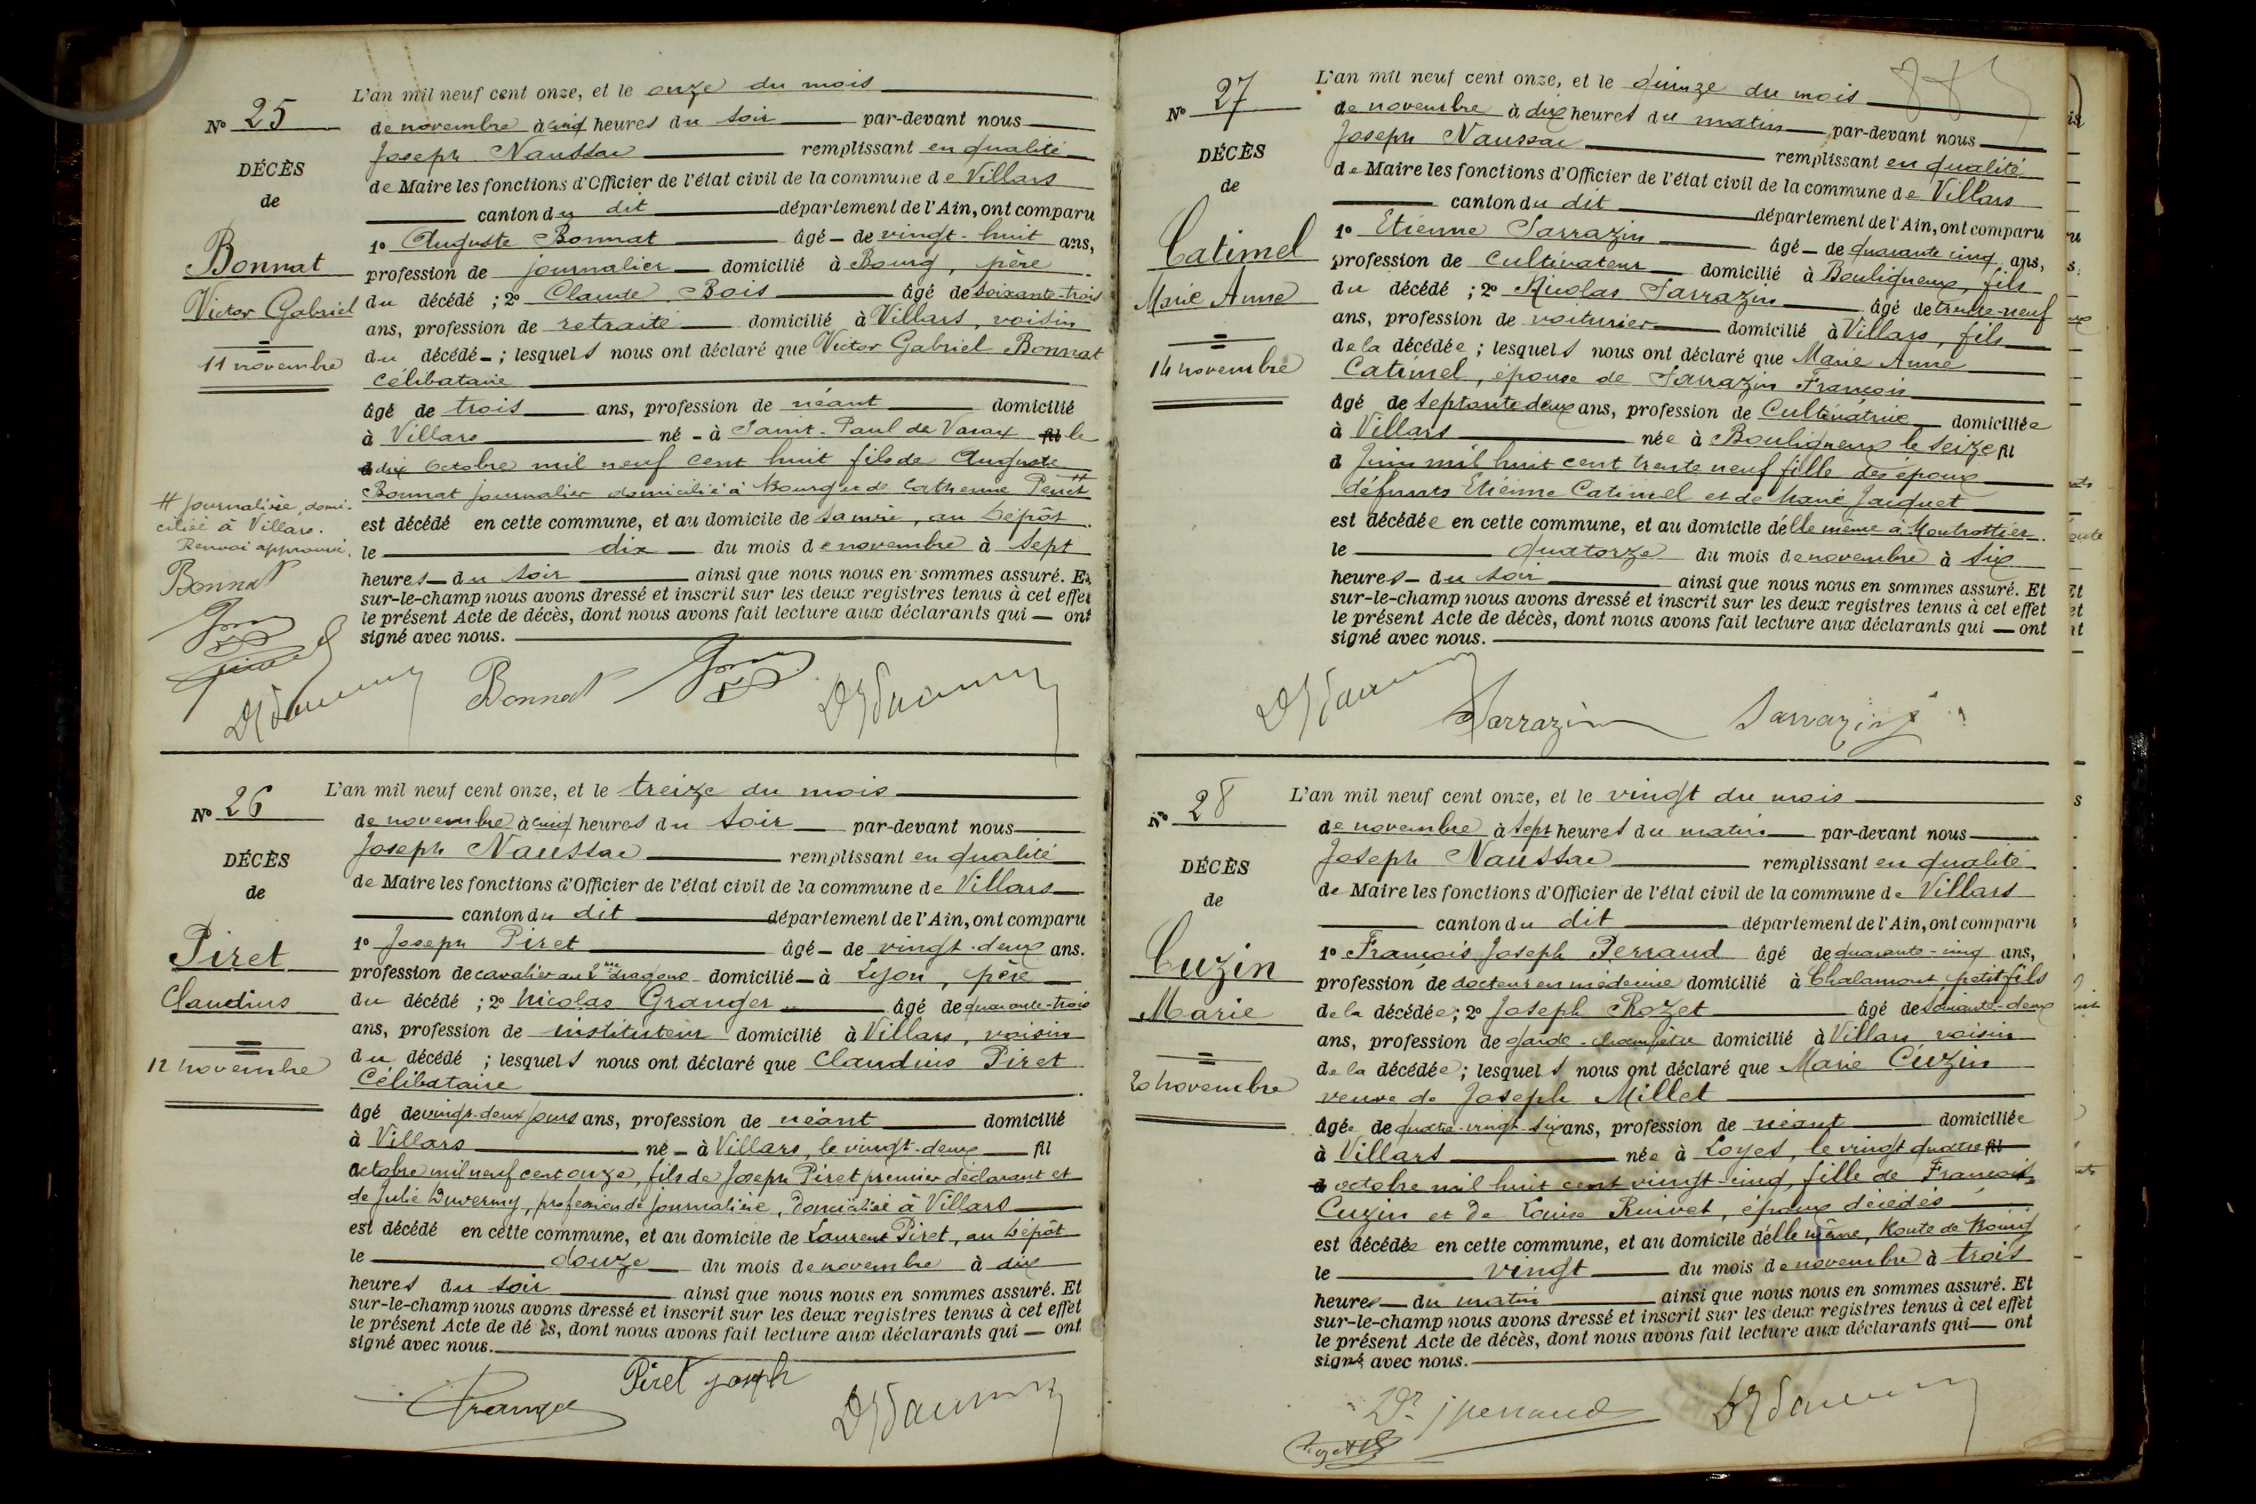 N° 25
DÉCÈS
de
Bonnat
Victor Gabriel
11 novembre
L'an mil neuf cent onze, et le onze du mois
de novembre à cinq heures du soir par-devant nous
Joseph Naussac remplissant en qualité
de Maire les fonctions d'Officier de l'état civil de la commune de Villars
canton du dit département de l'Ain, ont comparu
1° Auguste Bonnat âgé de vingt-huit ans,
profession de journalier domicilié à Bourg, père
du décédé ; 2° Claude Bois âgé de soixante-trois
ans, profession de retraité domicilié à Villars, voisin
du décédé ; lesquels nous ont déclaré que Victor Gabriel Bonnat
célibataire
âgé de trois ans, profession de néant domicilié
à Villars né à Saint-Paul de Varax fil le
d dix octobre mil neuf cent huit fils de Auguste
Bonnat journalier domicilié à Bourg et de Catherine Perret #
est décédé en cette commune, et au domicile de sa mère, au Dépôt
le dix du mois de novembre à sept
heures du soir ainsi que nous nous en sommes assuré. Et
sur-le-champ nous avons dressé et inscrit sur les deux registres tenus à cet effet
le présent Acte de décès, dont nous avons fait lecture aux déclarants qui ont
signé avec nous.
# journalière, domi-
ciliée à Villars.
Renvoi approuvé.
Bonnat
Bonnat
N° 26
DÉCÈS
de
Piret
Claudius
12 novembre
L'an mil neuf cent onze, et le treize du mois
de novembre à cinq heures du soir par-devant nous
Joseph Naussac remplissant en qualité
de Maire les fonctions d'Officier de l'état civil de la commune de Villars
canton du dit département de l'Ain, ont comparu
1° Joseph Piret âgé de vingt-deux ans.
profession de cavalier au 2me dragons domicilié à Lyon, père
du décédé ; 2° Nicolas Granger âgé de quarante-trois
ans, profession de instituteur domicilié à Villars, voisin
du décédé ; lesquels nous ont déclaré que Claudius Piret
Célibataire
âgé de vingt-deux jours ans, profession de néant domicilié
à Villars né à Villars, le vingt-deux fil
octobre mil neuf cent onze, fils de Joseph Piret premier déclarant et
de Julie Duverny, profession de journalière, domiciliée à Villars
est décédé en cette commune, et au domicile de Laurent Piret, au Dépôt
le douze du mois de novembre à dix
heures du soir ainsi que nous nous en sommes assuré. Et
sur-le-champ nous avons dressé et inscrit sur les deux registres tenus à cet effet
le présent Acte de dé ès, dont nous avons fait lecture aux déclarants qui ont
signé avec nous.
Piret joseph
Granger
N° 27
DÉCÈS
de
Catimel
Marie Anne
14 novembre
L'an mil neuf cent onze, et le quinze du mois
de novembre à dix heures du matin par-devant nous
Joseph Naussac remplissant en qualité
de Maire les fonctions d'Officier de l'état civil de la commune de Villars
canton du dit département de l'Ain, ont comparu
1° Etienne Sarrazin âgé de quarante cinq ans,
profession de cultivateur domicilié à Bouligneux, fils
du décédé ; 2° Nicolas Sarrazin âgé de trente-neuf
ans, profession de voiturier domicilié à Villars, fils
de la décédée ; lesquels nous ont déclaré que Marie Anne
Catimel, épouse de Sarrazin François
âgé de septante deux ans, profession de Cultivatrice domiciliée
à Villars née à Bouligneux le seize fil
d Juin mil huit cent trente neuf fille des époux
défunts Etienne Catimel et de Marie Jacquet
est décédée en cette commune, et au domicile d'elle même à Montrottier.
le quatorze du mois de novembre à six
heures du soir ainsi que nous nous en sommes assuré. Et
sur-le-champ nous avons dressé et inscrit sur les deux registres tenus à cet effet
le présent Acte de décès, dont nous avons fait lecture aux déclarants qui ont
signé avec nous.
Sarrazin Sarrazin
N° 28
DÉCÈS
de
Cuzin
Marie
20 novembre
L'an mil neuf cent onze, et le vingt du mois
de novembre à sept heures du matin par-devant nous
Joseph Naussac remplissant en qualité
de Maire les fonctions d'Officier de l'état civil de la commune de Villars
canton du dit département de l'Ain, ont comparu
1° François Joseph Perraud âgé de quarante-cinq ans,
profession de docteur en médecine domicilié à Chalamont, petit-fils
de la décédée ; 2° Joseph Rozet âgé de soixante-deux
ans, profession de garde-champêtre domicilié à Villars voisin
de la décédée ; lesquels nous ont déclaré que Marie Cuzin
veuve de Joseph Millet
âgée de quatre-vingt-six ans, profession de néant domiciliée
à Villars née à Loyes, le vingt quatre fil
d octobre mil huit cent vingt-cinq, fille de François
Cuzin et de Louise Ruivet, époux décédés
est décédée en cette commune, et au domicile d'elle même, Route de Bourg
le vingt du mois de novembre à trois
heures du matin ainsi que nous nous en sommes assuré. Et
sur-le-champ nous avons dressé et inscrit sur les deux registres tenus à cet effet
le présent Acte de décès, dont nous avons fait lecture aux déclarants qui ont
signé avec nous.
Dr j perraud